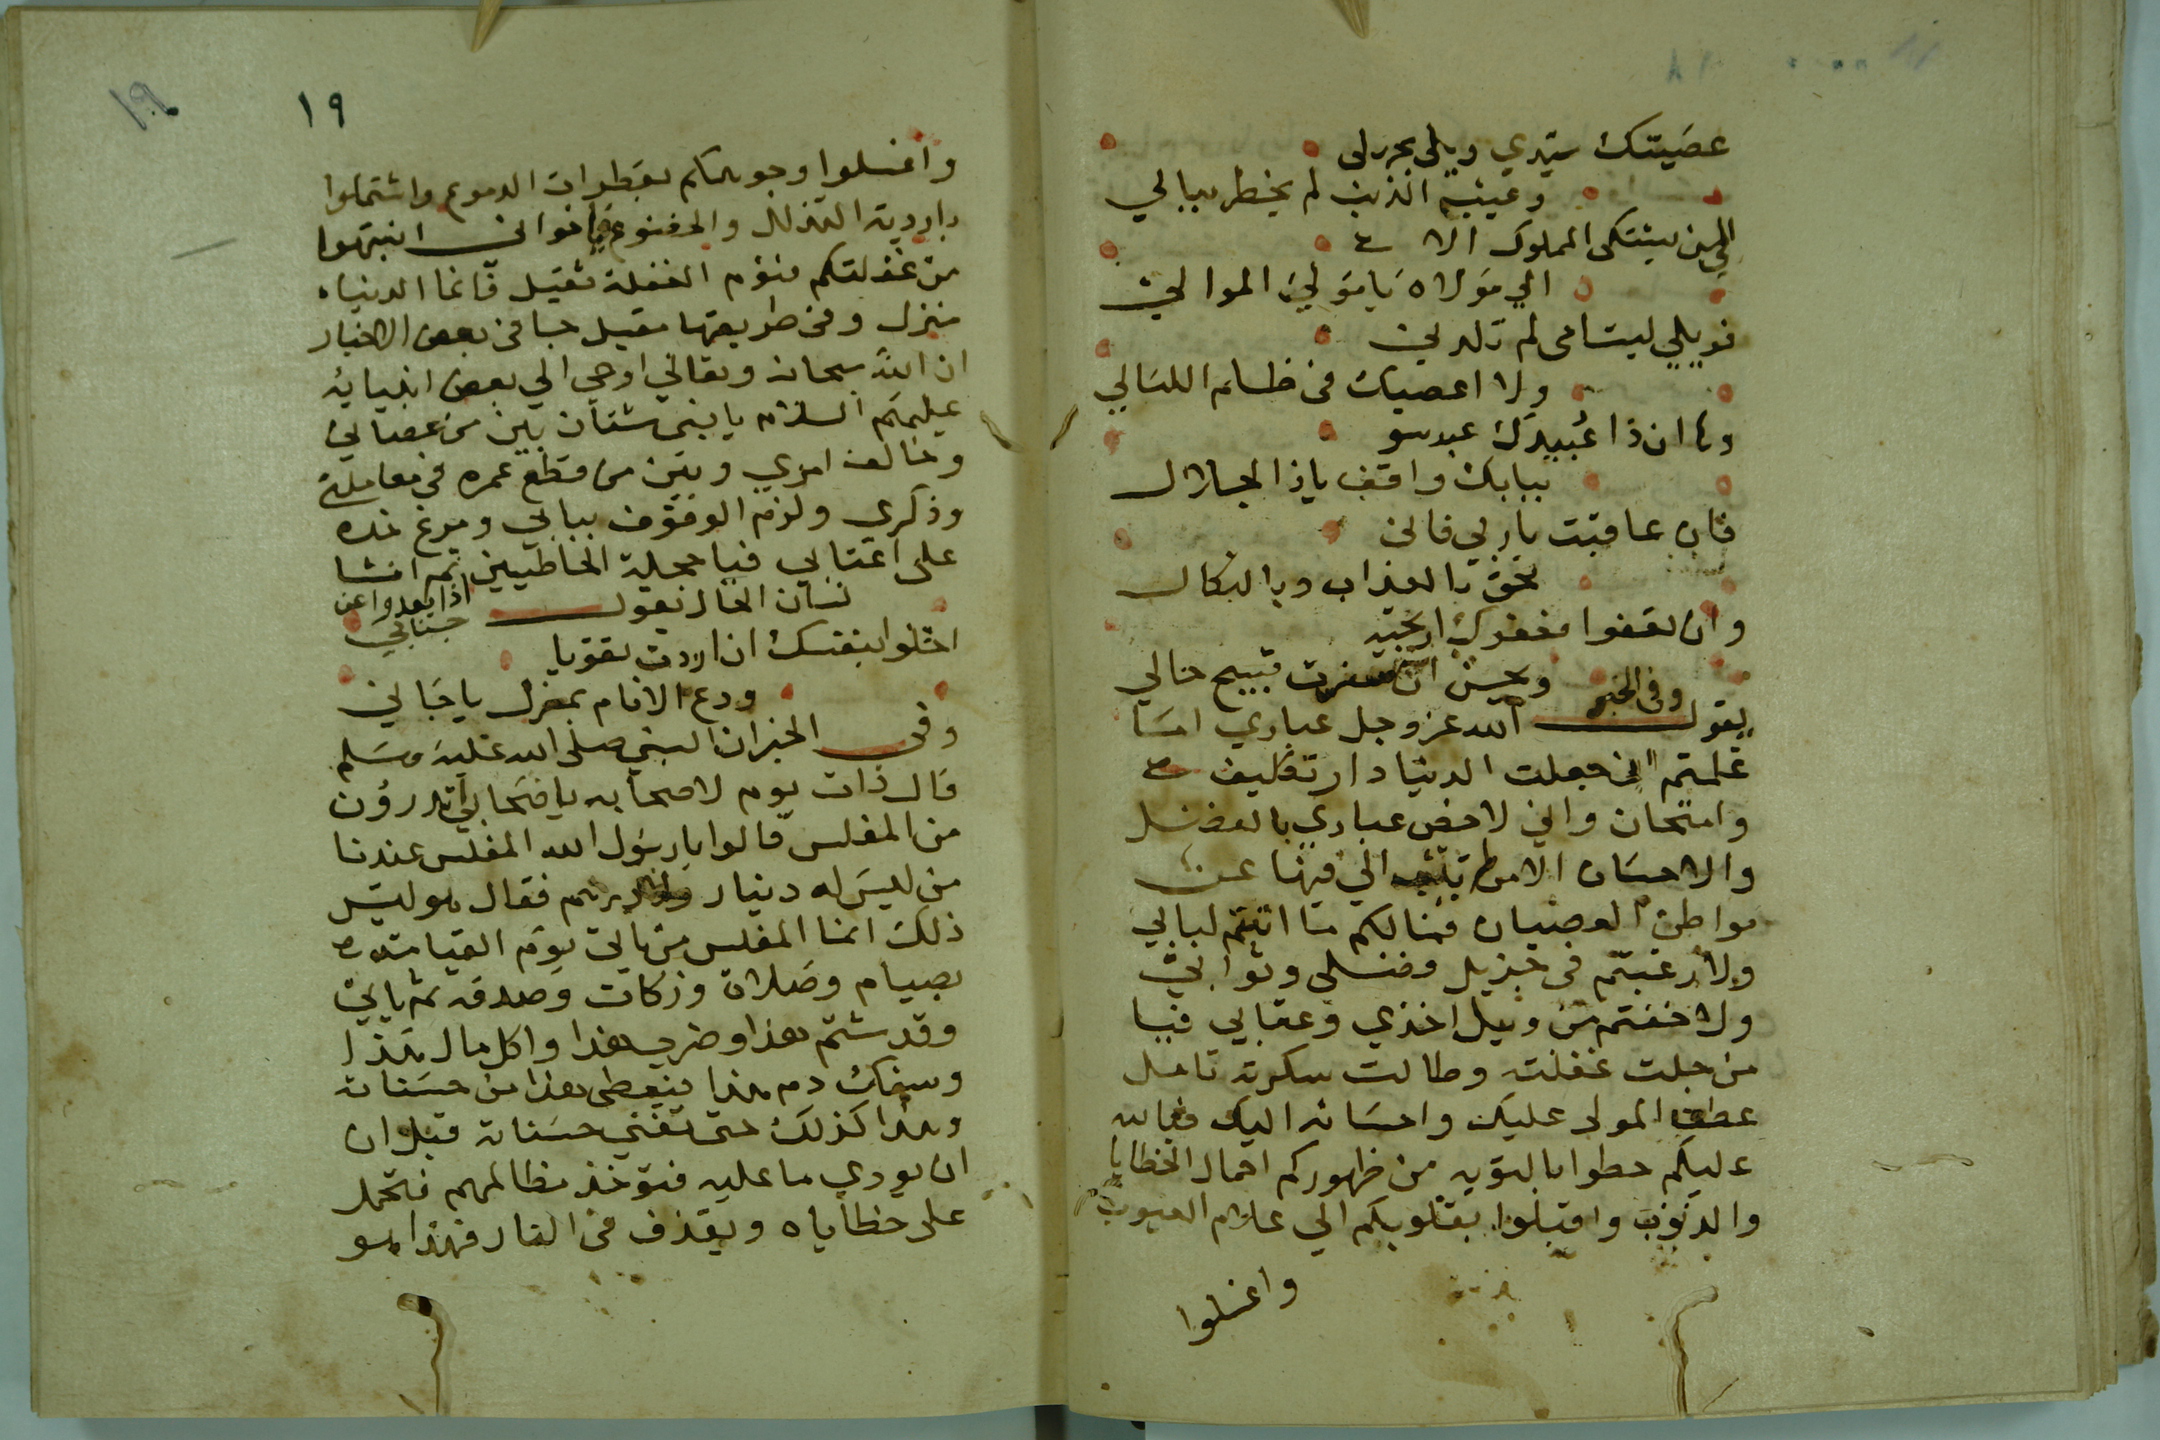 عصيتك سيدي ويلي بجهلي
وعيشة الذنب لم يخطر ببالي
الي من يشتكي المملوك الا
الي مولاه يا مولي الموالي
فويلي ليت امي لم تلدني
ولا اعصيك في ظلم الليالي
وها انا ذا عبيدك عبد سو
ببابك واقف ياذا الجلال
فان عاقبت ياربي فاني
محق بالعذاب وبالنكال
وان تعفوا فعفوك ارتجيه
ويحسن ان عفوت قبيح حالي
وفي الخبر
يقول الله عز وجل عبادي اما
علمتم اني جعلت الدنيا دار تكليف
وامتحان واني لاخص عبادي بالفضل
والاحسان الا من الي فيها عن
مواطن العصيان فمالكم ما اتيتم لبابي
ولا رغبتم في جزيل فضلي وثوابي
ولا خفتم من وبيل اخذي وعقابي فيا
من جلت غفلته وطالت سكرته تامل
عطف المولى عليك واحسانه اليك فبالله
عليكم حطوا بالتوبه من ظهوركم احمال الخطايا
والذنوب واقبلوا بقلوبكم الي علام الغيوب
واغسلوا
١٩
واغسلوا وجوهكم بقطرات الدموع واشتملوا
باردية التذلل والخضوع يا اخواني انتبهوا
من غفلتكم فنوم الغفلة ثقيل فانما الدنيا
منزل وفي طريقها مقيل جا في بعض الاخبار
ان الله سبحانه وتعالي اوحي الي بعض انبيائه
عليهم السلام يا بني شتان بين من عصاني
وخالف امري وبين من قطع عمره في معاملتي
وذكري ولزم الوقوف ببابي ومرغ خده
على اعتابي فيا خجلة الخاطيين ثم انشا
اذا بعدوا عن
جنابي
لسان الحال يقول
اخلوا بنفسك ان اردت تقربا
ودع الانام بمعزل يا جاني
وفي الخبر ان النبي صلى الله عليه وسلم
قال ذات يوم لاصحابه يا اصحابي اتدرون
من المفلس قالوا يا رسول الله المفلس عندنا
من ليس له دينار ولا درهم فقال هو ليس
ذلك انما المفلس من ياتي يوم القيامة
بصيام وصلاة وزكات وصدقه ثم ياتي
وقد شتم هذا وضرب هذا واكل مال هذا
وسفك دم هذا فيعطى هذا من حسناته
وهذا كذلك حتى تفني حسناته قبل ان
ان يودي ما عليه فتوخذ مظالمهم فتحمل
على خطاياه ويقذف في النار فهذا هو